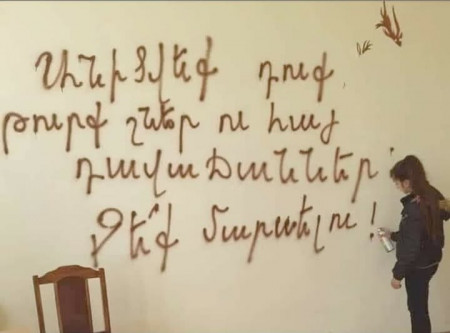 Անիծվեք դուք
թուրք շներ ու հայ
դավաճաններ
Չե՛ք մարսելու!